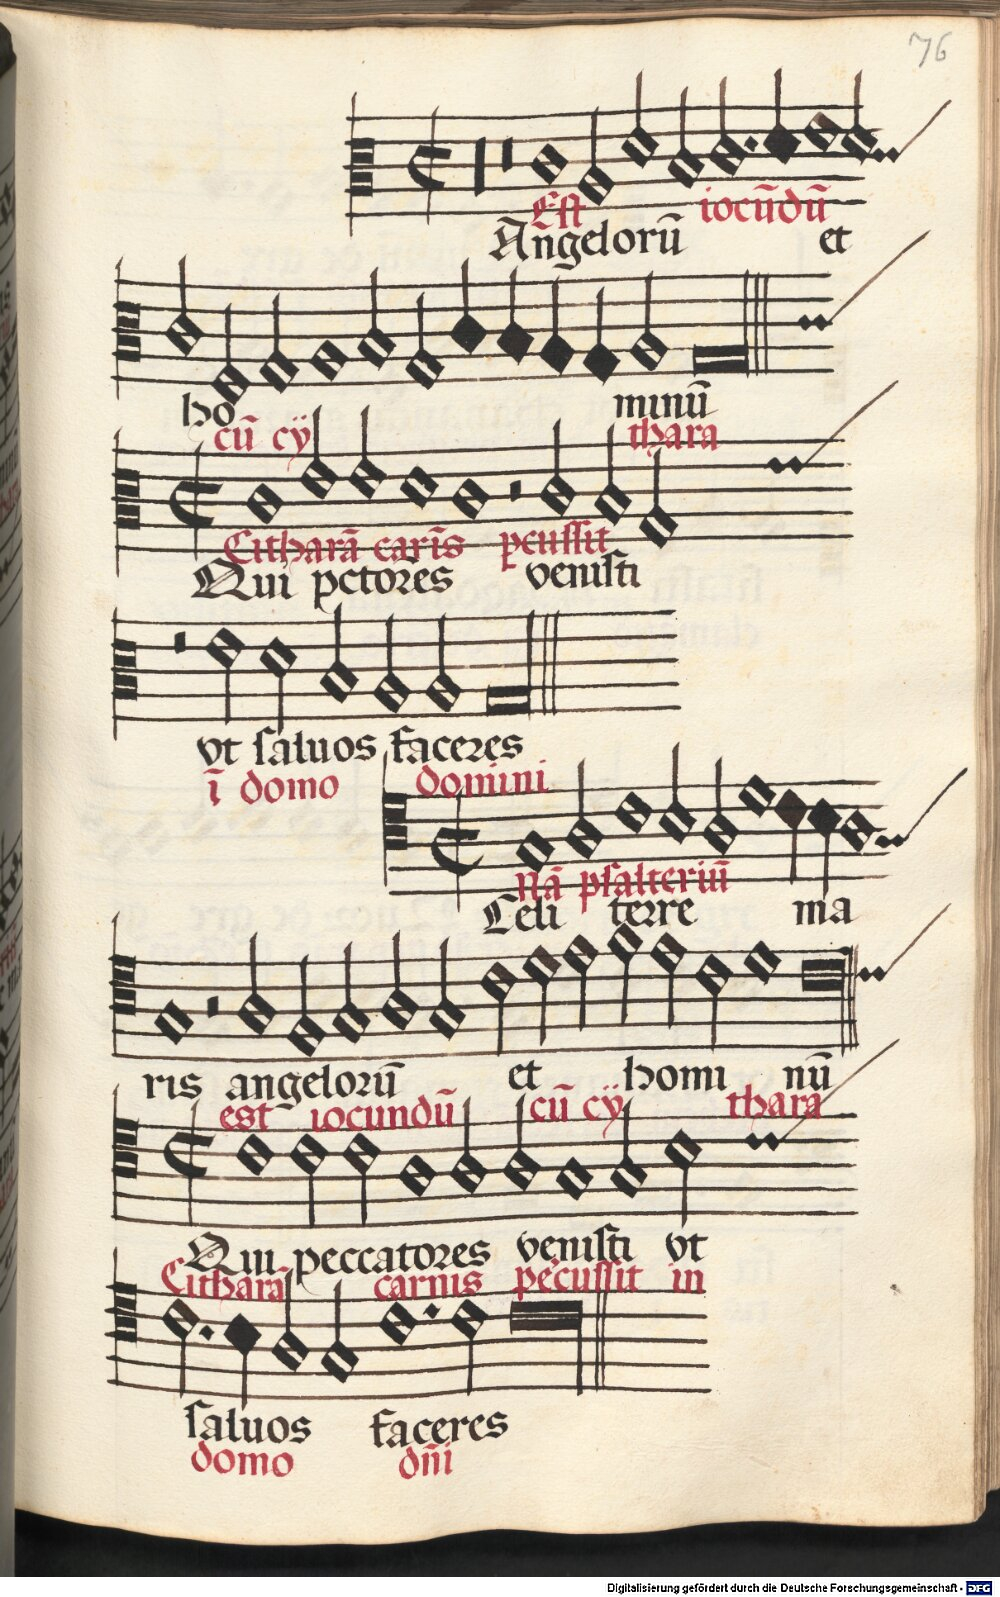 76
Est iocūdū
Angelorū et
ho minū
cū cÿ thara
Citharā carīs pcussit
Qui pctores venisti
vt saluos faceres
ī domo domini
Nā psalteriū
Celi terre ma
ris angelorū et homi nū
est iocundū cū cÿ thara
Qui peccatores venisti vt
Citharā carnis pecussit in
saluos faceres
domo dñi
Digitalisierung gefördert durch die Deutsche Forschungsgemeinschaft - DFG